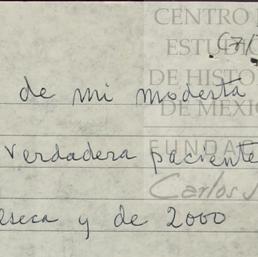 CENTRO
ESTUDIO
DE HISTO
DE MÉXIC
FUNDA
Carlos
de mi modesta
verdadera paciente
eseca y de 2000